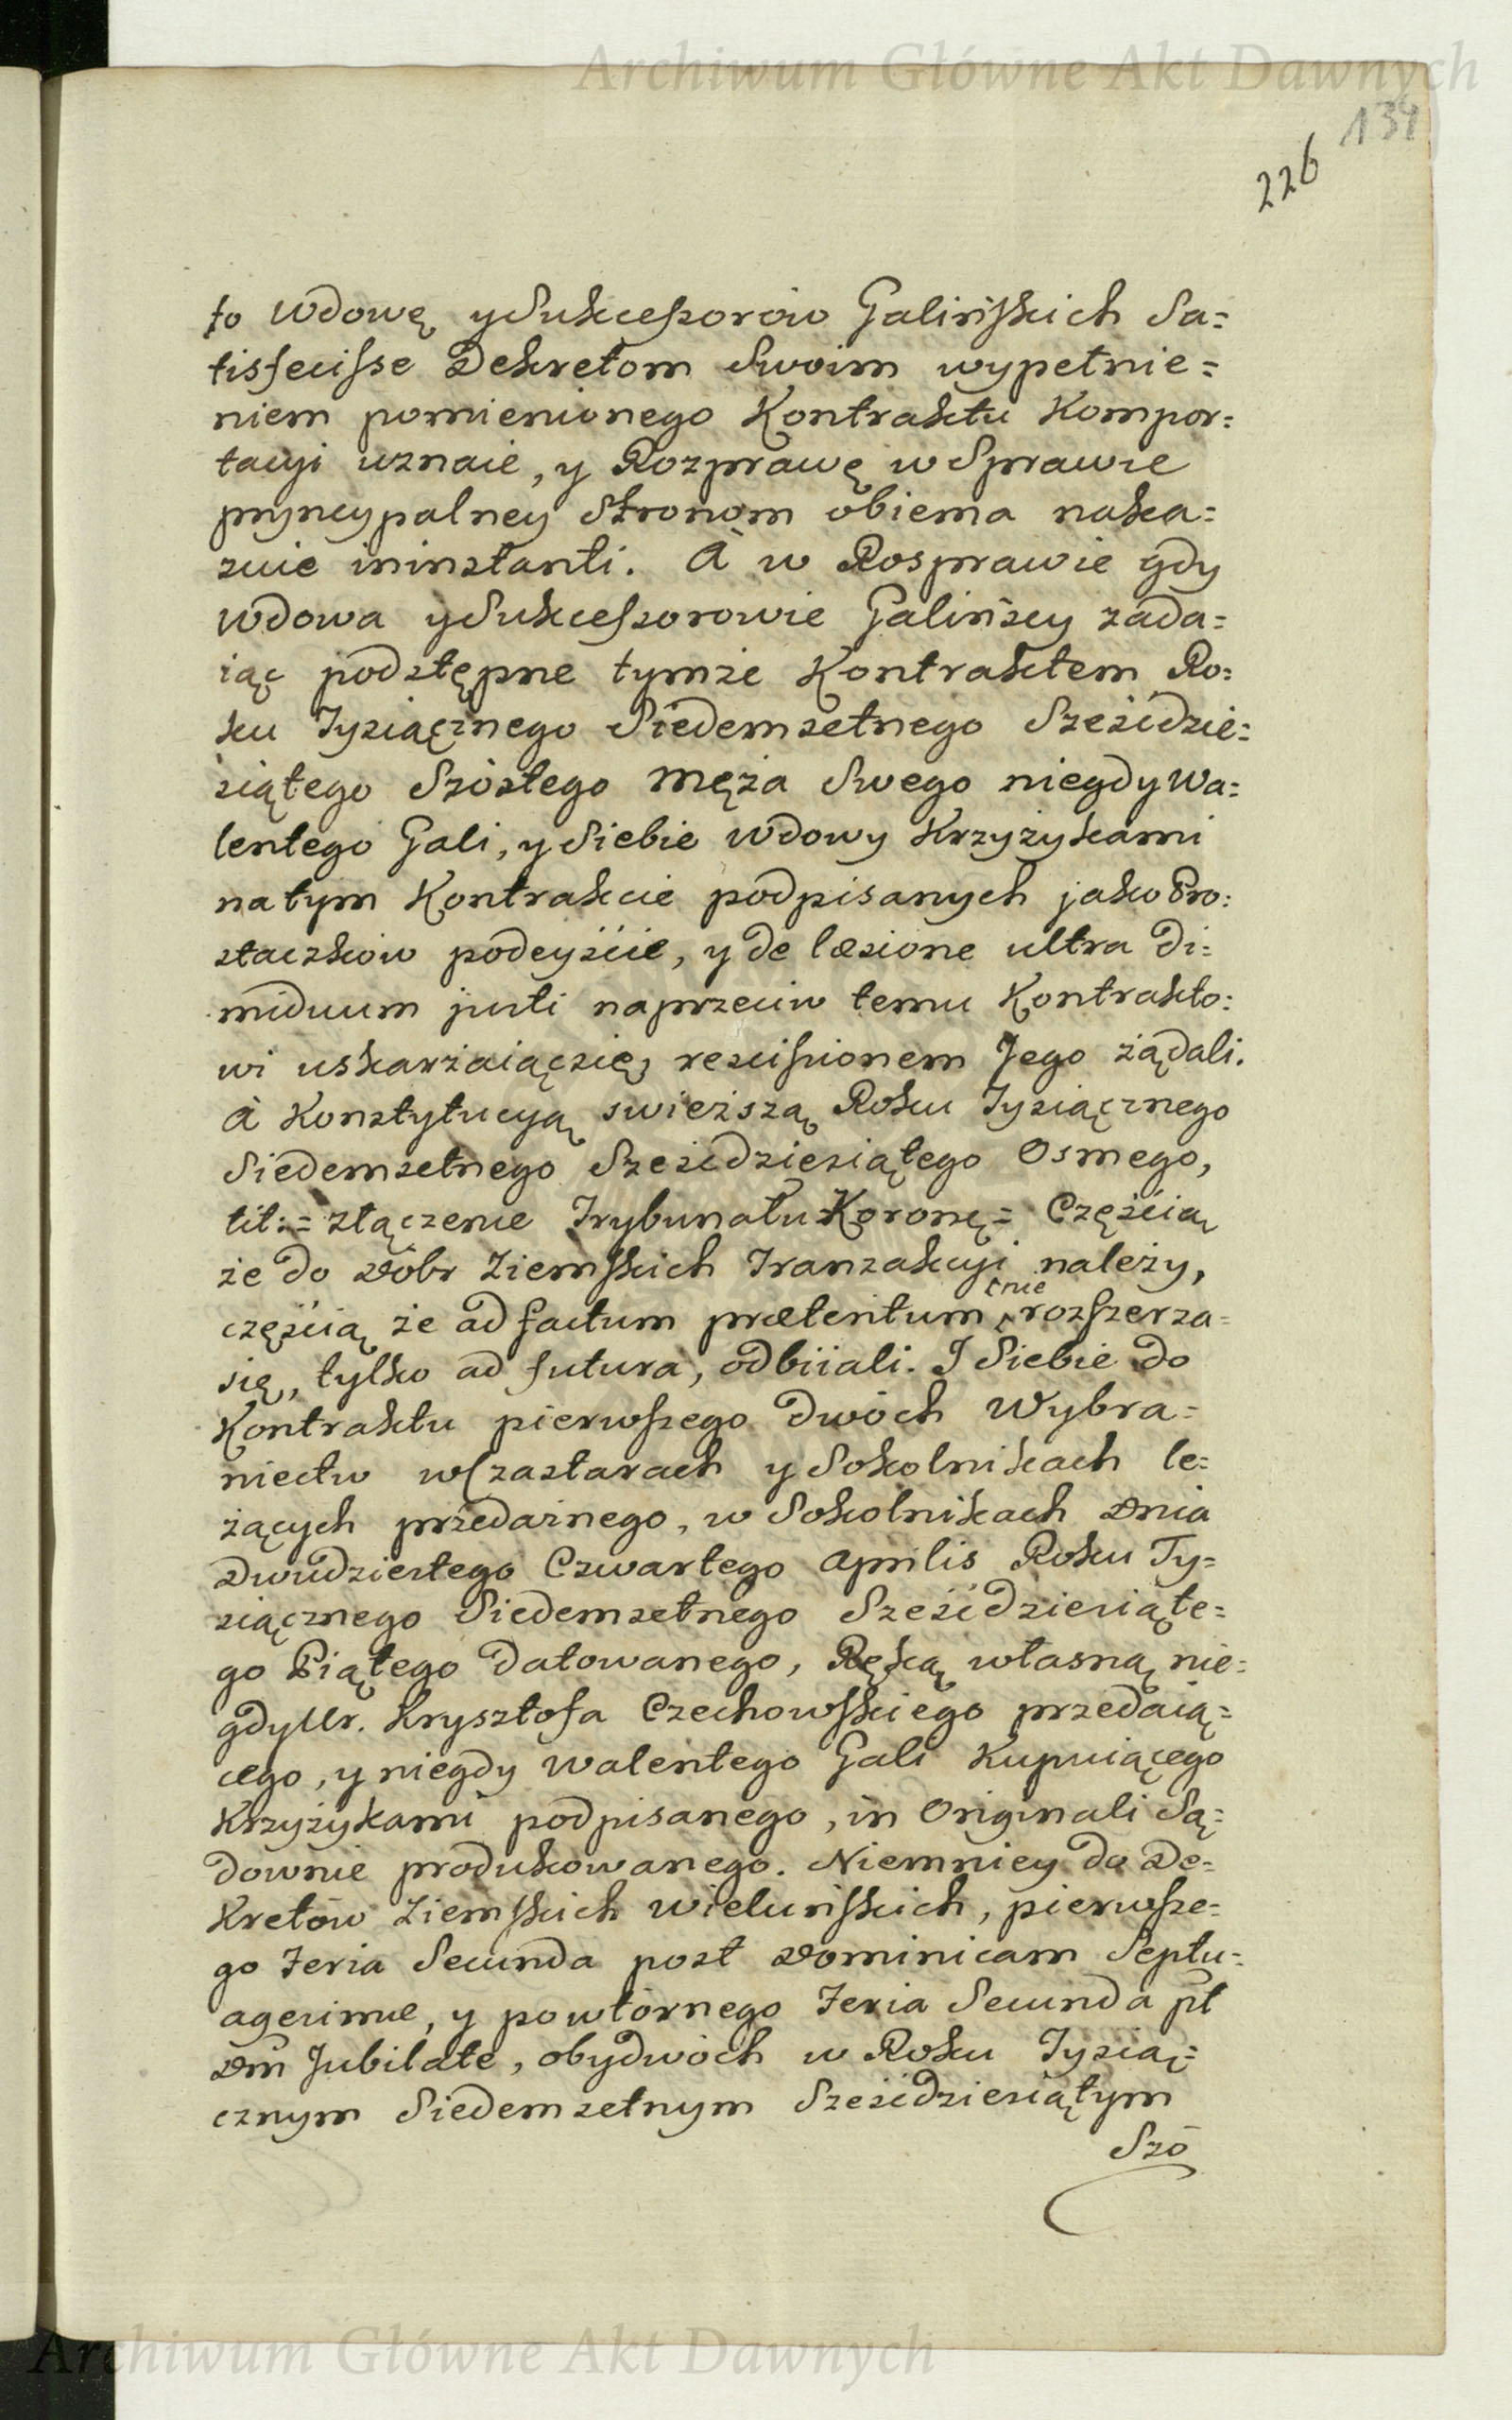 Archiwum Główne Akt Dawnych
134
226
to Wdowę y Sukcessorów Galińskich Sa=
tisfecisse Dekretom Swoim wypełnie=
niem pomienionego Kontraktu Kompor=
tacyi uznaie, y Rozprawę w Sprawie
pryncypalney Stronom obiema naka=
zuie in instanti. A w Rosprawie gdy
Wdowa y Sukcessorowie Galińscy zada=
iąc podstępne tymże Kontraktem Ro=
ku Tysiącznego Siedemsetnego Sześćdzie=
siątego Szóstego Męża Swego niegdy Wa=
lentego Gali, y Siebie Wdowy Krzyżykami
na tym Kontrakcie podpisanych jako Pro=
staczków podeyście, y de læsione ultra di=
miduum justi naprzeciw temu Kontrakto=
wi uskarżaiąc się, rescissionem Jego żądali.
A Konstytucyą swieższą Roku Tysiącznego
Siedemsetnego Sześćdziesiątego Osmego,
tit:= złączenie Trybunału Koronę= Częścią
że do Dóbr Ziemskich Tranzakcyi należy,
częścią że ad factum prætentum nie rozszerza=
się, tylko ad futura, odbiiali. I Siebie do
Kontraktu pierwszego dwóch Wybra=
niectw w Czastarach y Sokolnikach le=
żących przedaznego, w Sokolnikach Dnia
Dwudziestego Czwartego Aprilis Roku Ty=
siącznego Siedemsetnego Sześćdziesiąte=
go Piątego datowanego, Ręką własną nie=
gdy Ur. Krysztofa Czechowskiego przedaią=
cego, y niegdy Walentego Gali Kupuiącego
Krzyżykami podpisanego, in Originali Są=
downie produkowanego. Niemniey do De=
kretów Ziemskich Wieluńskich, pierwsze=
go Feria Secunda post Dominicam Septu=
agesimæ, y powtórnego Feria Secunda pt
Dm Jubilate, obydwóch w Roku Tysią=
cznym Siedemsetnym Sześćdziesiątym
Szó
Archiwum Główne Akt Dawnych